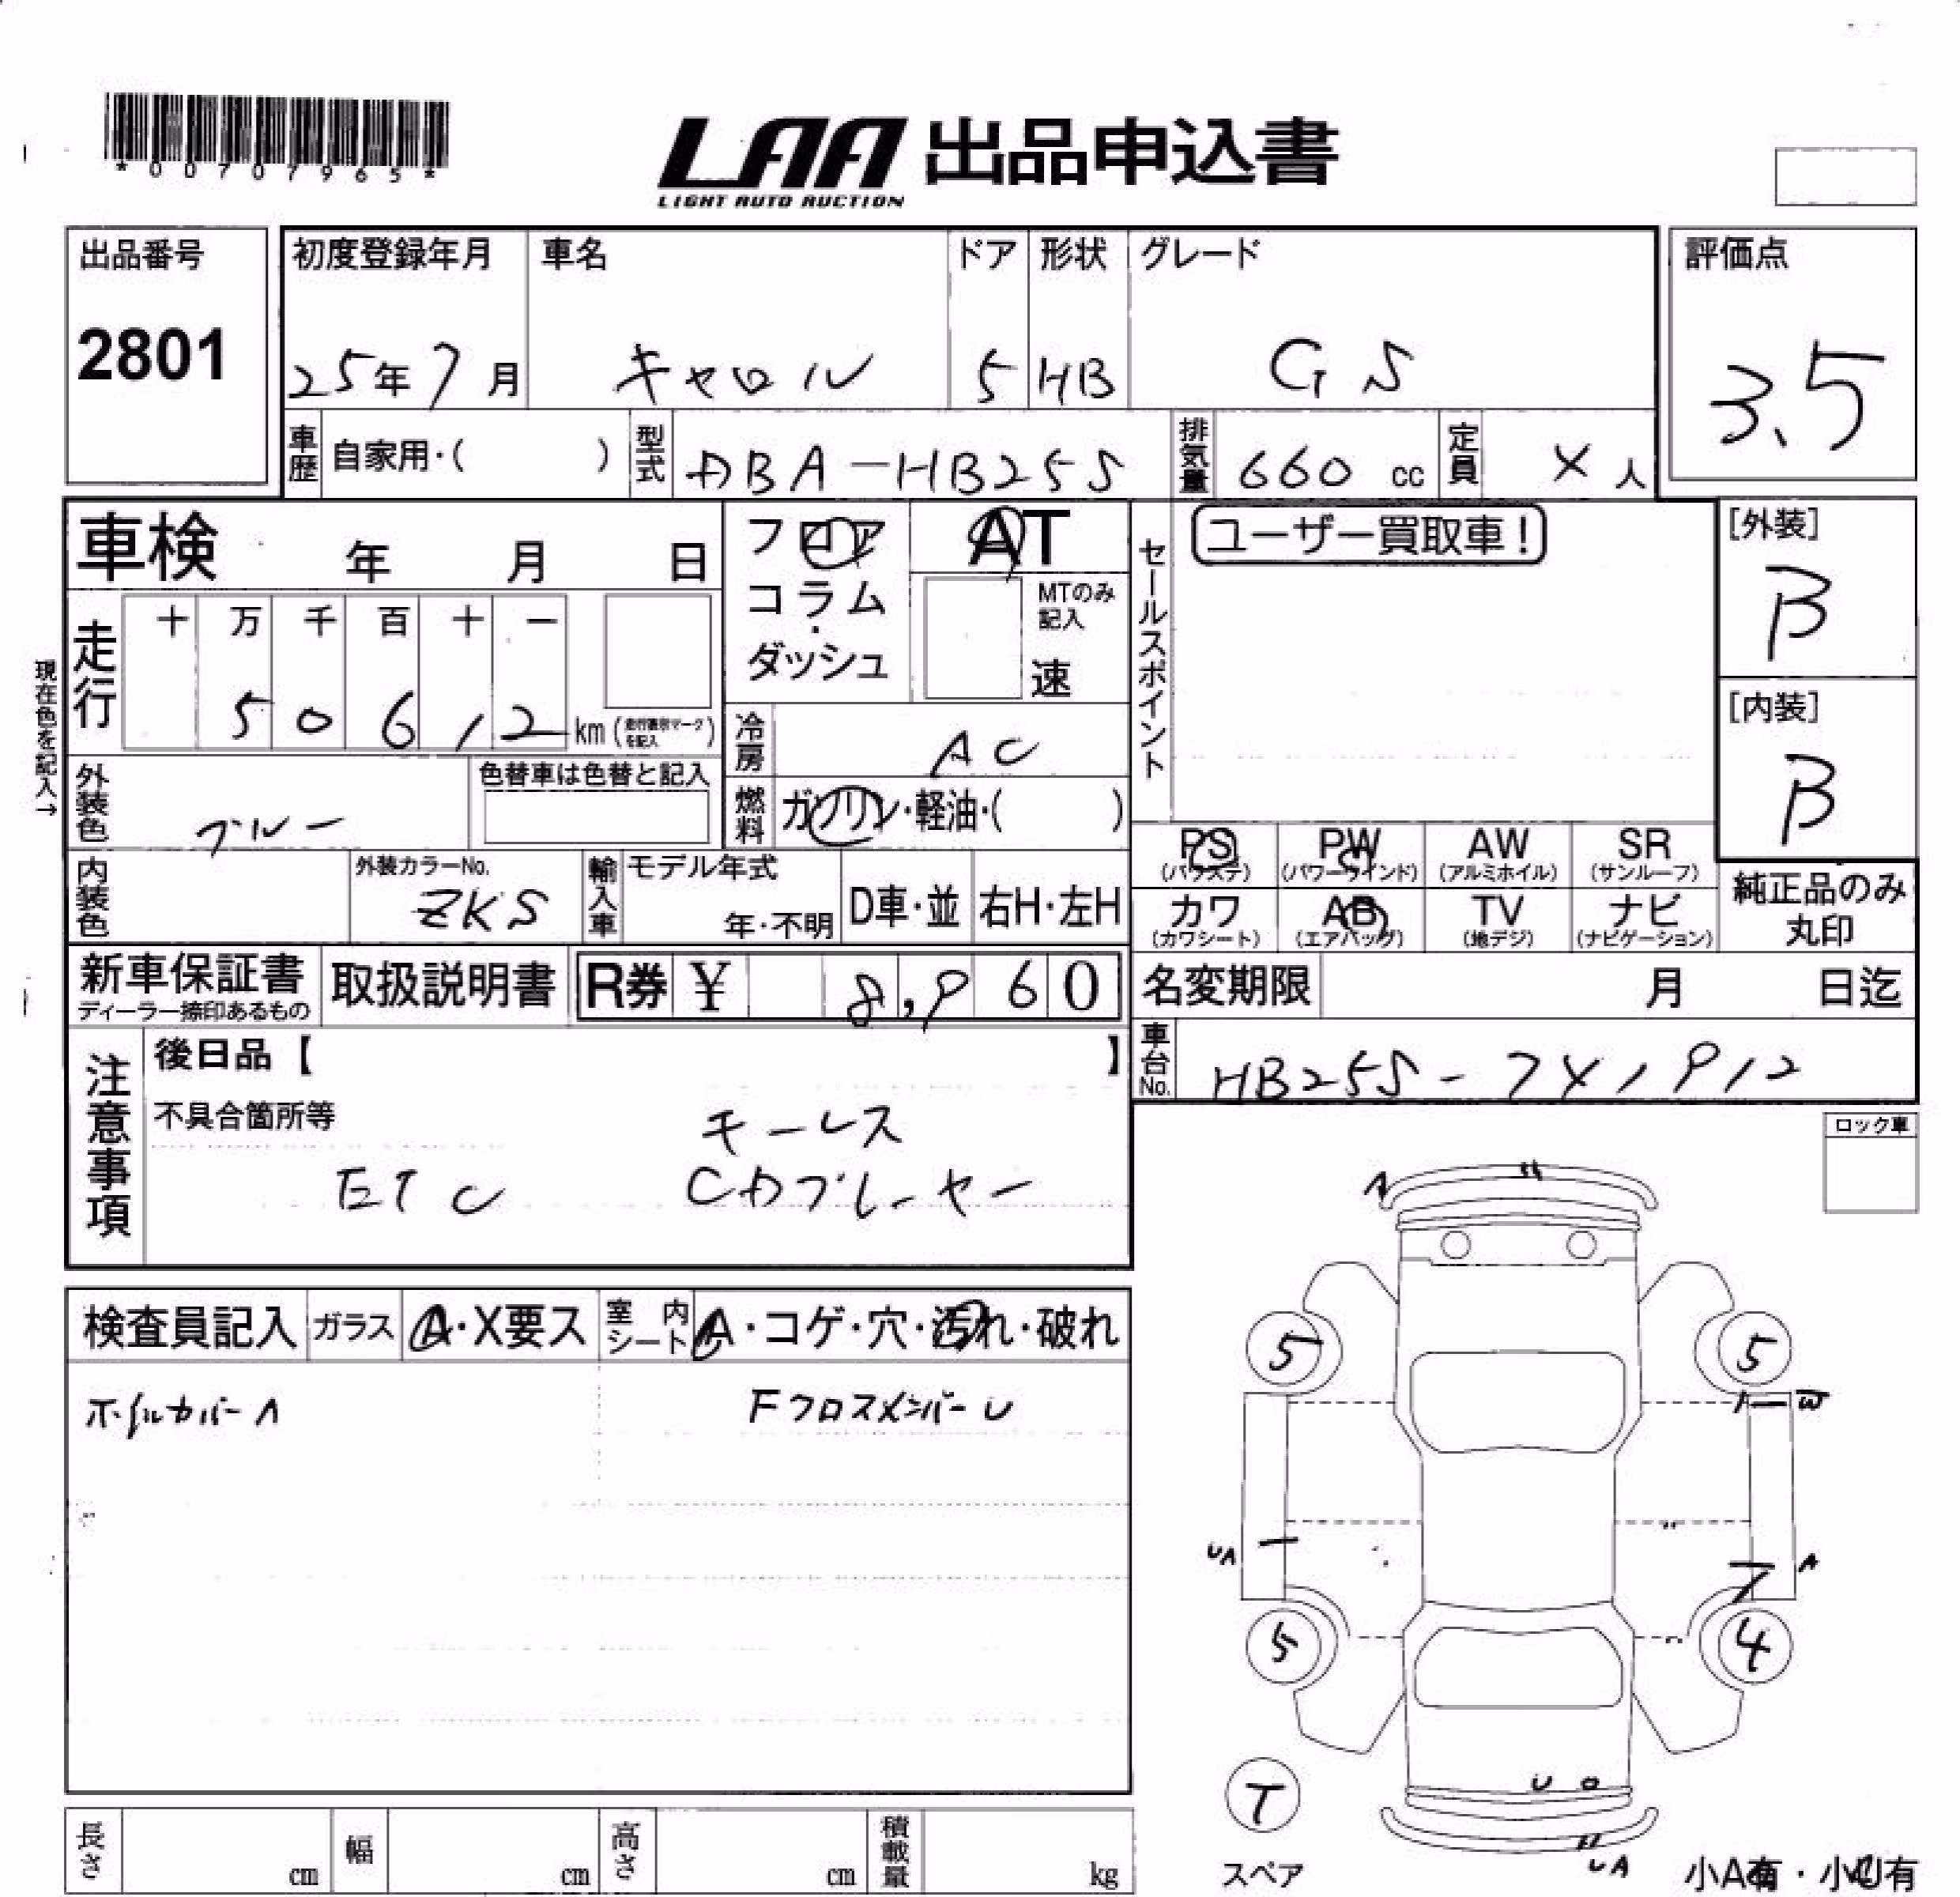 *00707965*
LAA 出品申込書
LIGHT AUTO AUCTION
出品番号 初度登録年月 車名 ドア 形状 グレード 評価点
2801 25年7月 キャロル 5 HB GS 3.5
車歴 自家用・( ) 型式 DBA-HB25S 排気量 660 cc 定員 4 人
車検 年 月 日 フロア AT セールスポイント ユーザー買取車! [外装]
コラム MTのみ記入 B
ダッシュ 速
走行 十 万 千 百 十 一
50612 km (走行裏示マークを記入)
現在色を記入→
冷房 AC [内装]
外装色 ブルー 色替車は色替と記入 燃料 ガソリン・軽油・( ) B
PS PW AW SR
(パワステ) (パワーウインド) (アルミホイル) (サンルーフ)
内装色 外装カラーNo. ZKS 輸入車 モデル年式 年・不明 D車・並 右H・左H
カワ AB TV ナビ 純正品のみ
(カワシート) (エアバッグ) (地デジ) (ナビゲーション) 丸印
新車保証書 取扱説明書 R券 ¥ 8,960 名変期限 月 日迄
ディーラー捺印あるもの
注意事項 後日品【 】 車台No. HB25S-741912
不具合箇所等 キーレス ロック車
ETC CDプレーヤー
A
検査員記入 ガラス A・X要ス 室内シート A・コゲ・穴・汚れ・破れ
5 5
ホイルカバーA Fクロスメンバー U
W
UA A
5 4
T U
スペア UA 小A有・小U有
長さ cm 幅 cm 高さ cm 積載量 kg